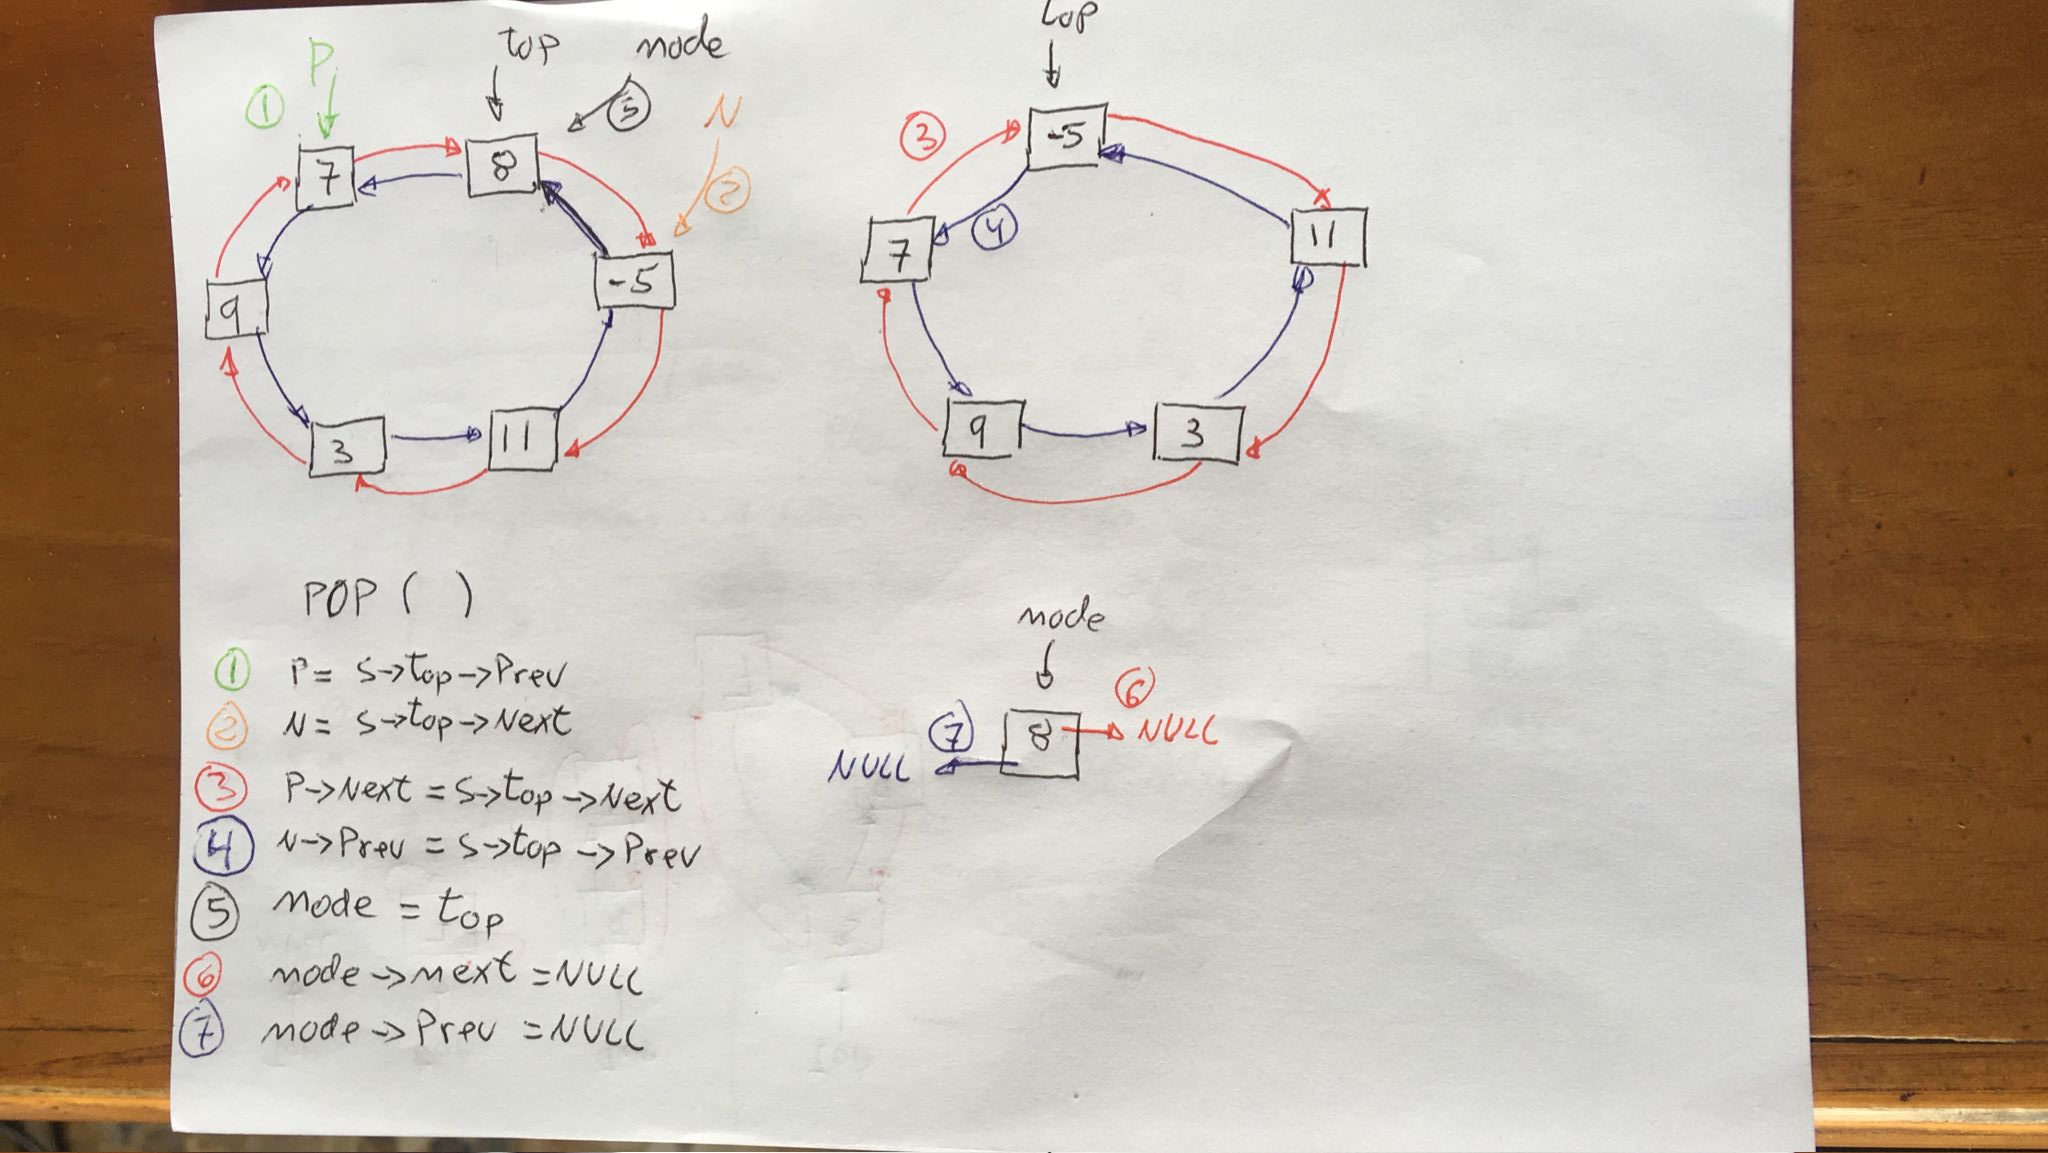 P
top
node
①
⑤
N
②
7
8
-5
9
3
11
top
③
-5
④
7
11
9
3
POP ( )
① P = S→top→Prev
② N = S→top→Next
③ P→Next = S→top→Next
④ N→Prev = S→top→Prev
⑤ node = top
⑥ node→next = NULL
⑦ node→Prev = NULL
node
⑥
⑦ 8 NULL
NULL